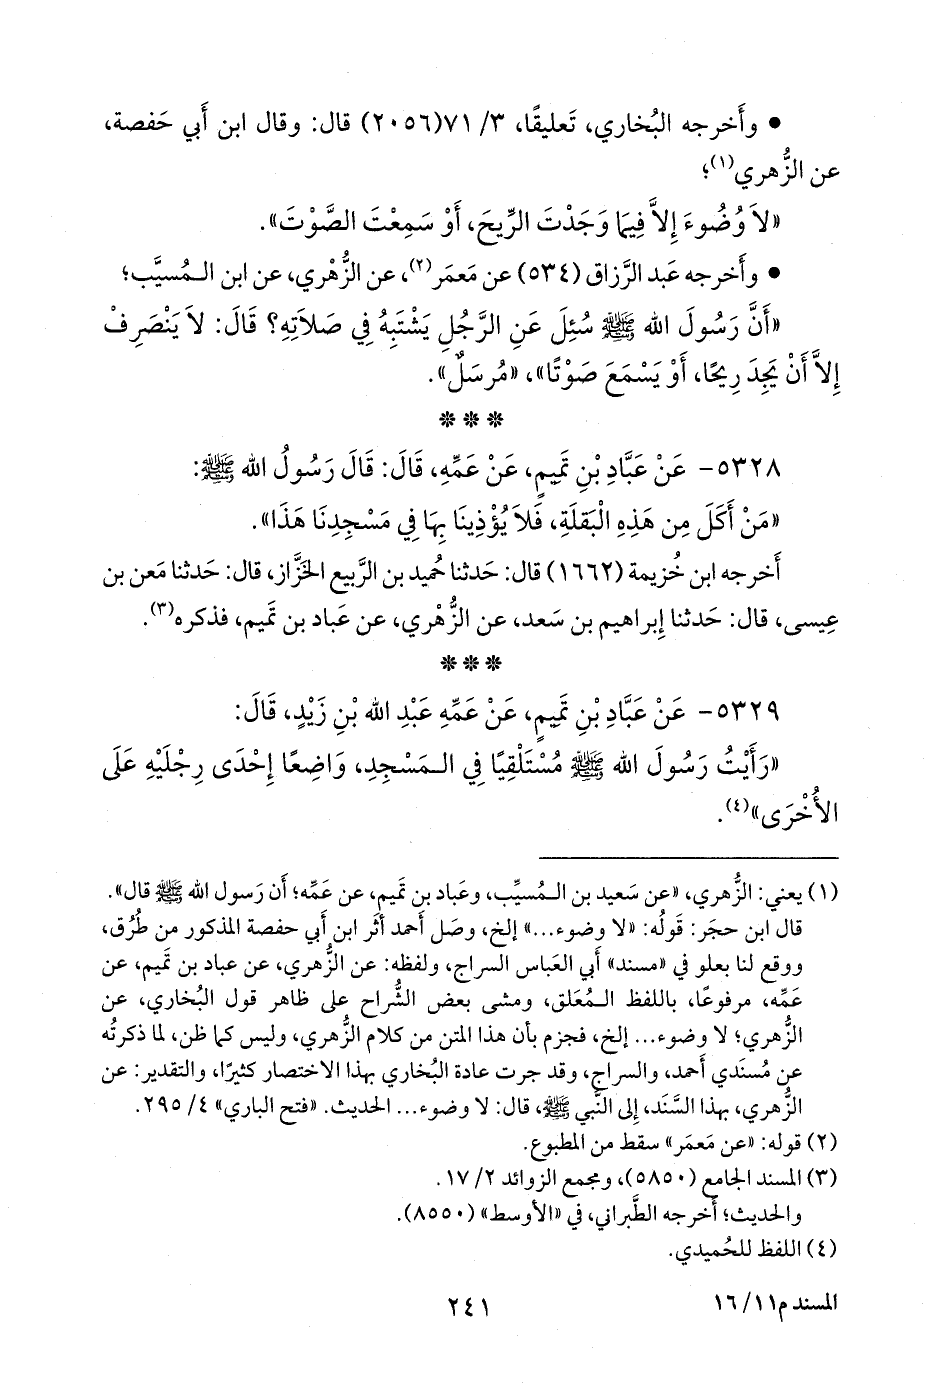 • وأَخرجه البُخاري، تَعليقًا، ٣/ ٧١(٢٠٥٦) قال: وقال ابن أَبي حَفصة،
عن الزُّهري(١)؛
«لاَ وُضُوءَ إِلاَّ فِيمَا وَجَدْتَ الرِّيحَ، أَوْ سَمِعْتَ الصَّوْتَ».
• وأَخرجه عَبد الرَّزاق (٥٣٤) عن مَعمَر(٢)، عن الزُّهْري، عن ابن المُسيَّب؛
«أَنَّ رَسُولَ الله ﷺ سُئِلَ عَنِ الرَّجُلِ يَشْتَبِهُ فِي صَلاَتِهِ؟ قَالَ: لاَ يَنْصَرِفْ
إِلاَّ أَنْ يَجِدَ رِيحًا، أَوْ يَسْمَعَ صَوْتًا»، «مُرسَلٌ».
* * *
٥٣٢٨- عَنْ عَبَّادِ بْنِ تَمِيمٍ، عَنْ عَمِّهِ، قَالَ: قَالَ رَسُولُ الله ﷺ:
«مَنْ أَكَلَ مِن هَذِهِ الْبَقلَةِ، فَلاَ يُؤْذِينَا بِهَا فِي مَسْجِدِنَا هَذَا».
أَخرجه ابن خُزيمة (١٦٦٢) قال: حَدثنا حُميد بن الرَّبيع الخَزَّاز، قال: حَدثنا مَعن بن
عِيسى، قال: حَدثنا إِبراهيم بن سَعد، عن الزُّهْري، عن عَباد بن تَميم، فذكره(٣).
* * *
٥٣٢٩- عَنْ عَبَّادِ بْنِ تَمِيمٍ، عَنْ عَمِّهِ عَبْدِ الله بْنِ زَيْدٍ، قَالَ:
«رَأَيْتُ رَسُولَ الله ﷺ مُسْتَلْقِيًا فِي المَسْجِدِ، وَاضِعًا إِحْدَى رِجْلَيْهِ عَلَى
الأُخْرَى»(٤).
(١) يعني: الزُّهري، «عن سَعيد بن المُسيِّب، وعَباد بن تَميم، عن عَمِّه؛ أَن رَسول الله ﷺ قال».
قال ابن حجَر: قَولُه: «لا وضوء...» إلخ، وصَل أَحمد أَثَر ابن أَبي حفصة المذكور من طُرُق،
ووقع لنا بعلو في «مسند» أَبي العَباس السراج، ولفظه: عن الزُّهْري، عن عباد بن تَميم، عن
عَمِّه، مرفوعًا، باللفظ المُعَلق، ومشى بعض الشُّراح على ظاهر قول البُخاري، عن
الزُّهري؛ لا وضوء... إلخ، فجزم بأن هذا المتن من كلام الزُّهري، وليس كما ظن، لما ذكرتُه
عن مُسنَدي أَحمد، والسراج، وقد جرت عادة البُخاري بهذا الاختصار كثيرًا، والتقدير: عن
الزُّهري، بهذا السَّنَد، إِلى النَّبي ﷺ، قال: لا وضوء... الحديث. «فتح الباري» ٤/ ٢٩٥.
(٢) قوله: «عن مَعمَر» سقط من المطبوع.
(٣) المسند الجامع (٥٨٥٠)، ومجمع الزوائد ٢/ ١٧.
والحديث؛ أَخرجه الطَّبراني، في «الأوسط» (٨٥٥٠).
(٤) اللفظ للحُميدي.
المسند م١١/ ١٦
٢٤١